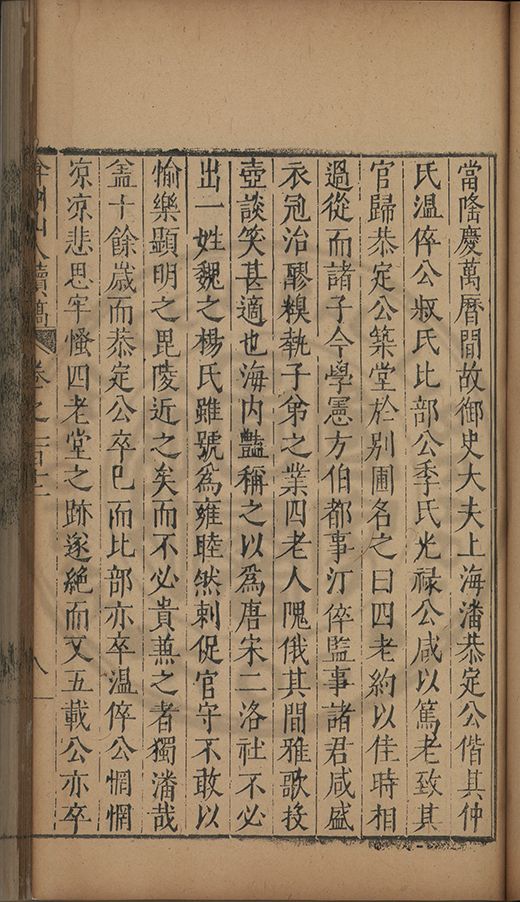 當隆慶萬曆間故御史大夫上海潘恭定公偕其仲
氏溫倅公叔氏比部公季氏光祿公咸以篤老致其
官歸恭定公築堂於別圃名之曰四老約以佳時相
過從而諸子今學憲方伯都事汀倅監事諸君咸盛
衣冠治醪糗執子弟之業四老人隗俄其間雅歌投
壺談笑甚適也海內豔稱之以爲唐宋二洛社不必
出一姓魏之楊氏雖號爲雍睦然刺促官守不敢以
愉樂顯明之毘陵近之矣而不必貴蕪之者獨潘哉
盖十餘嵗而恭定公卒已而比部亦卒溫倅公惘惘
凉凉悲思牢慅四老堂之跡遂絶而又五載公亦卒
山人續稿 卷之一百十 八